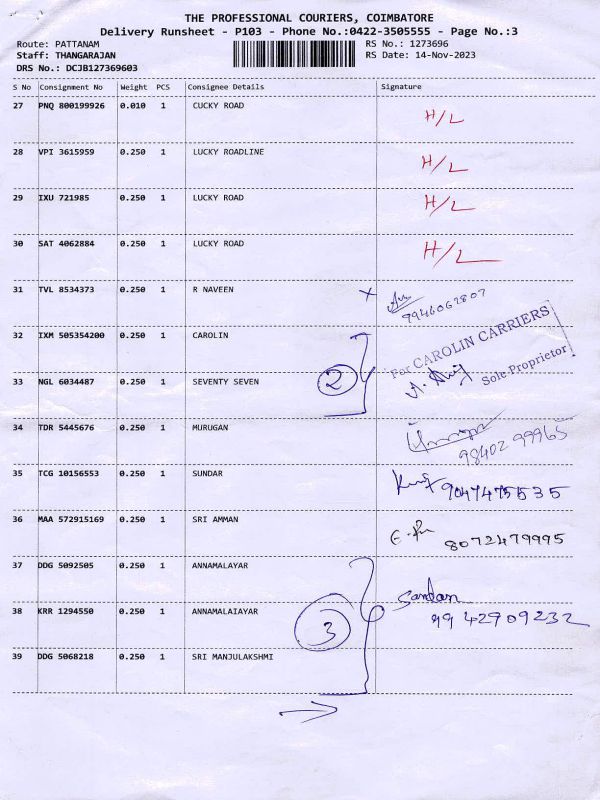 THE PROFESSIONAL COURIERS, COIMBATORE
Delivery Runsheet - P103 - Phone No.:0422-3505555 - Page No.:3
Route: PATTANAM RS No.: 1273696
Staff: THANGARAJAN RS Date: 14-Nov-2023
DRS No.: DCJB127369603
S No Consignment No Weight PCS Consignee Details Signature
27 PNQ 800199926 0.010 1 CUCKY ROAD H/L
28 VPI 3615959 0.250 1 LUCKY ROADLINE H/L
29 IXU 721985 0.250 1 LUCKY ROAD H/L
30 SAT 4062884 0.250 1 LUCKY ROAD H/L
31 TVL 8534373 0.250 1 R NAVEEN x
9946062807
32 IXM 505354200 0.250 1 CAROLIN For CAROLIN CARRIERS
33 NGL 6034487 0.250 1 SEVENTY SEVEN 2 Sole Proprietor
34 TDR 5445676 0.250 1 MURUGAN
98402 99965
35 TCG 10156553 0.250 1 SUNDAR 9047475535
36 MAA 572915169 0.250 1 SRI AMMAN 8072479995
37 DDG 5092505 0.250 1 ANNAMALAYAR Sandan
38 KRR 1294550 0.250 1 ANNAMALAIAYAR 3 9942909232
39 DDG 5068218 0.250 1 SRI MANJULAKSHMI